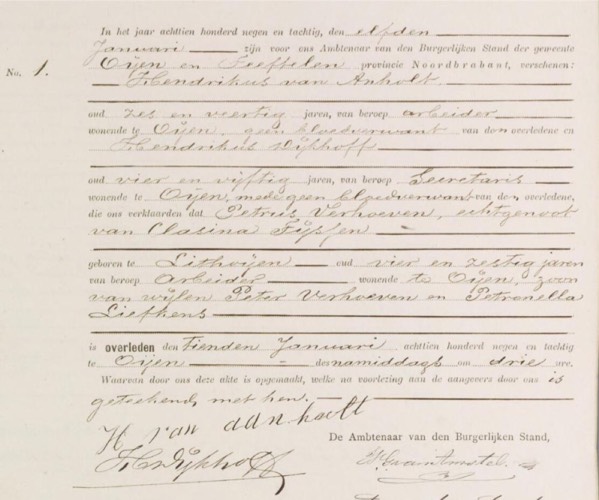 In het jaar achttien honderd negen en tachtig, den elfden
Januari zijn voor ons Ambtenaar van den Burgerlijken Stand der gemeente
No. 1. Oijen en Teeffelen provincie Noordbrabant, verschenen:
Hendrikus van Anholt
oud zes en veertig jaren, van beroep arbeider
wonende te Oijen, geen bloedverwant van den overledene en
Hendrikus Dijkhoff
oud vier en vijftig jaren, van beroep Secretaris
wonende te Oijen, mede geen bloedverwant van den overledene,
die ons verklaarden dat Petrus Verhoeven, echtgenoot
van Clasina
geboren te Lithoijen oud vier en zestig jaren
van beroep Arbeider wonende te Oijen, zoon
van wijlen Peter Verhoeven en Petronella
Liefkens
is overleden den Tienden Januari achttien honderd negen en tachtig
te Oijen des namiddags om drie ure.
Waarvan door ons deze akte is opgemaakt, welke na voorlezing aan de aangevers door ons is
geteekend, met hen.
H van aanholt
De Ambtenaar van den Burgerlijken Stand,
HDijkhoff